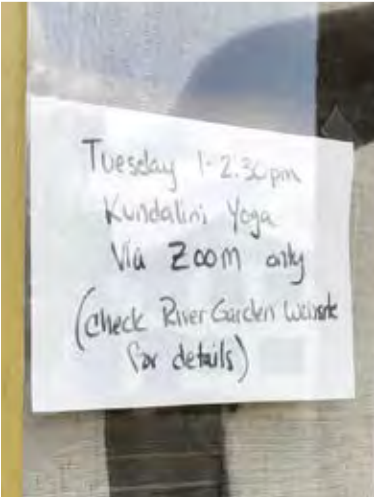 Tuesday 1-2.30pm
Kundalini Yoga
Via Zoom only
(Check River Garden Website
for details)